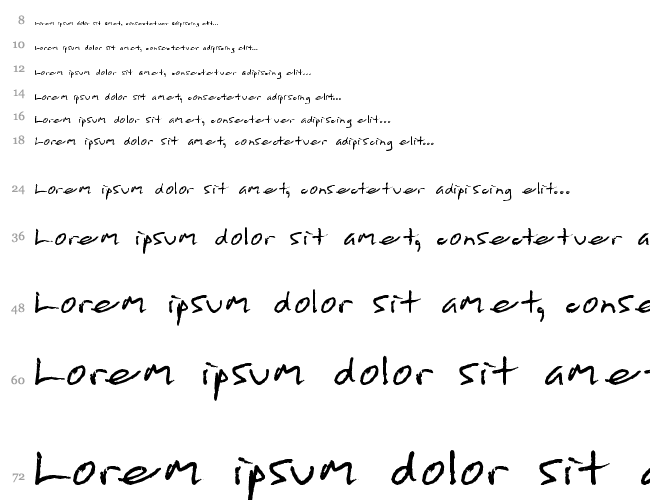 8 Lorem ipsum dolor sit amet, consectetuer adipiscing elit...
10 Lorem ipsum dolor sit amet, consectetuer adipiscing elit...
12 Lorem ipsum dolor sit amet, consectetuer adipiscing elit...
14 Lorem ipsum dolor sit amet, consectetuer adipiscing elit...
16 Lorem ipsum dolor sit amet, consectetuer adipiscing elit...
18 Lorem ipsum dolor sit amet, consectetuer adipiscing elit...
24 Lorem ipsum dolor sit amet, consectetuer adipiscing elit...
36 Lorem ipsum dolor sit amet, consectetuer a
48 Lorem ipsum dolor sit amet, conse
60 Lorem ipsum dolor sit ame
72 Lorem ipsum dolor sit a